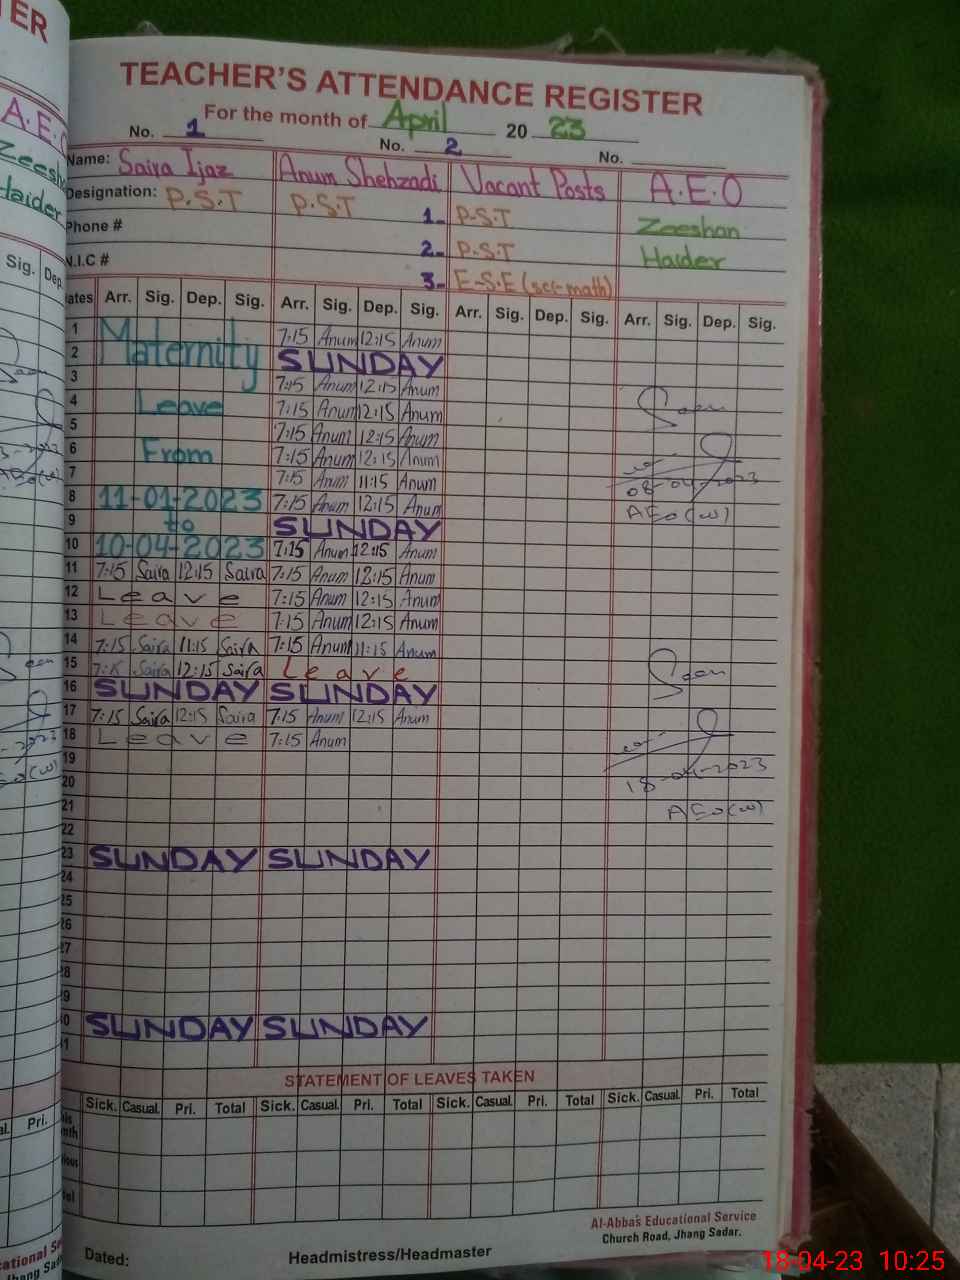 TER
A.E.O
Zeesh
Haider
Sig. Dep.
TEACHER'S ATTENDANCE REGISTER
For the month of April 2023
No. 1 No. 2 No.
Name: Saira Ijaz Anum Shehzadi Vacant Posts A.E.O
Designation: P.S.T P.S.T 1- P.S.T Zeeshan
Phone # 2- P.S.T Haider
N.I.C # 3- E-S.E (sci-math)
ates Arr. Sig. Dep. Sig. Arr. Sig. Dep. Sig. Arr. Sig. Dep. Sig. Arr. Sig. Dep. Sig.
1 Maternity 7:15 Anum 12:15 Anum
2 SUNDAY
3 7:15 Anum 12:15 Anum
4 Leave 7:15 Anum 12:15 Anum Seen
5 7:15 Anum 12:15 Anum
6 From 7:15 Anum 12:15 Anum
7 7:15 Anum 11:15 Anum
8 11-01-2023 7:15 Anum 12:15 Anum 08-04-2023
9 to SUNDAY AEO(W)
10 10-04-2023 7:15 Anum 12:15 Anum
11 7:15 Saira 12:15 Saira 7:15 Anum 12:15 Anum
12 Leave 7:15 Anum 12:15 Anum
13 Leave 7:15 Anum 12:15 Anum
14 7:15 Saira 11:15 Saira 7:15 Anum 11:15 Anum
15 Saira 12:15 Saira Leave Seen
16 SUNDAY SUNDAY
17 7:15 Saira 12:15 Saira 7:15 Anum 12:15 Anum
18 Leave 7:15 Anum
19 18-04-2023
20
21 AEO(W)
22
23 SUNDAY SUNDAY
24
25
26
27
28
29
30 SUNDAY SUNDAY
31
STATEMENT OF LEAVES TAKEN
Sick. Casual. Pri. Total Sick. Casual. Pri. Total Sick. Casual. Pri. Total Sick. Casual. Pri. Total
Pri.
Al-Abbas Educational Service
Church Road, Jhang Sadar.
Dated: Headmistress/Headmaster
18-04-23 10:25